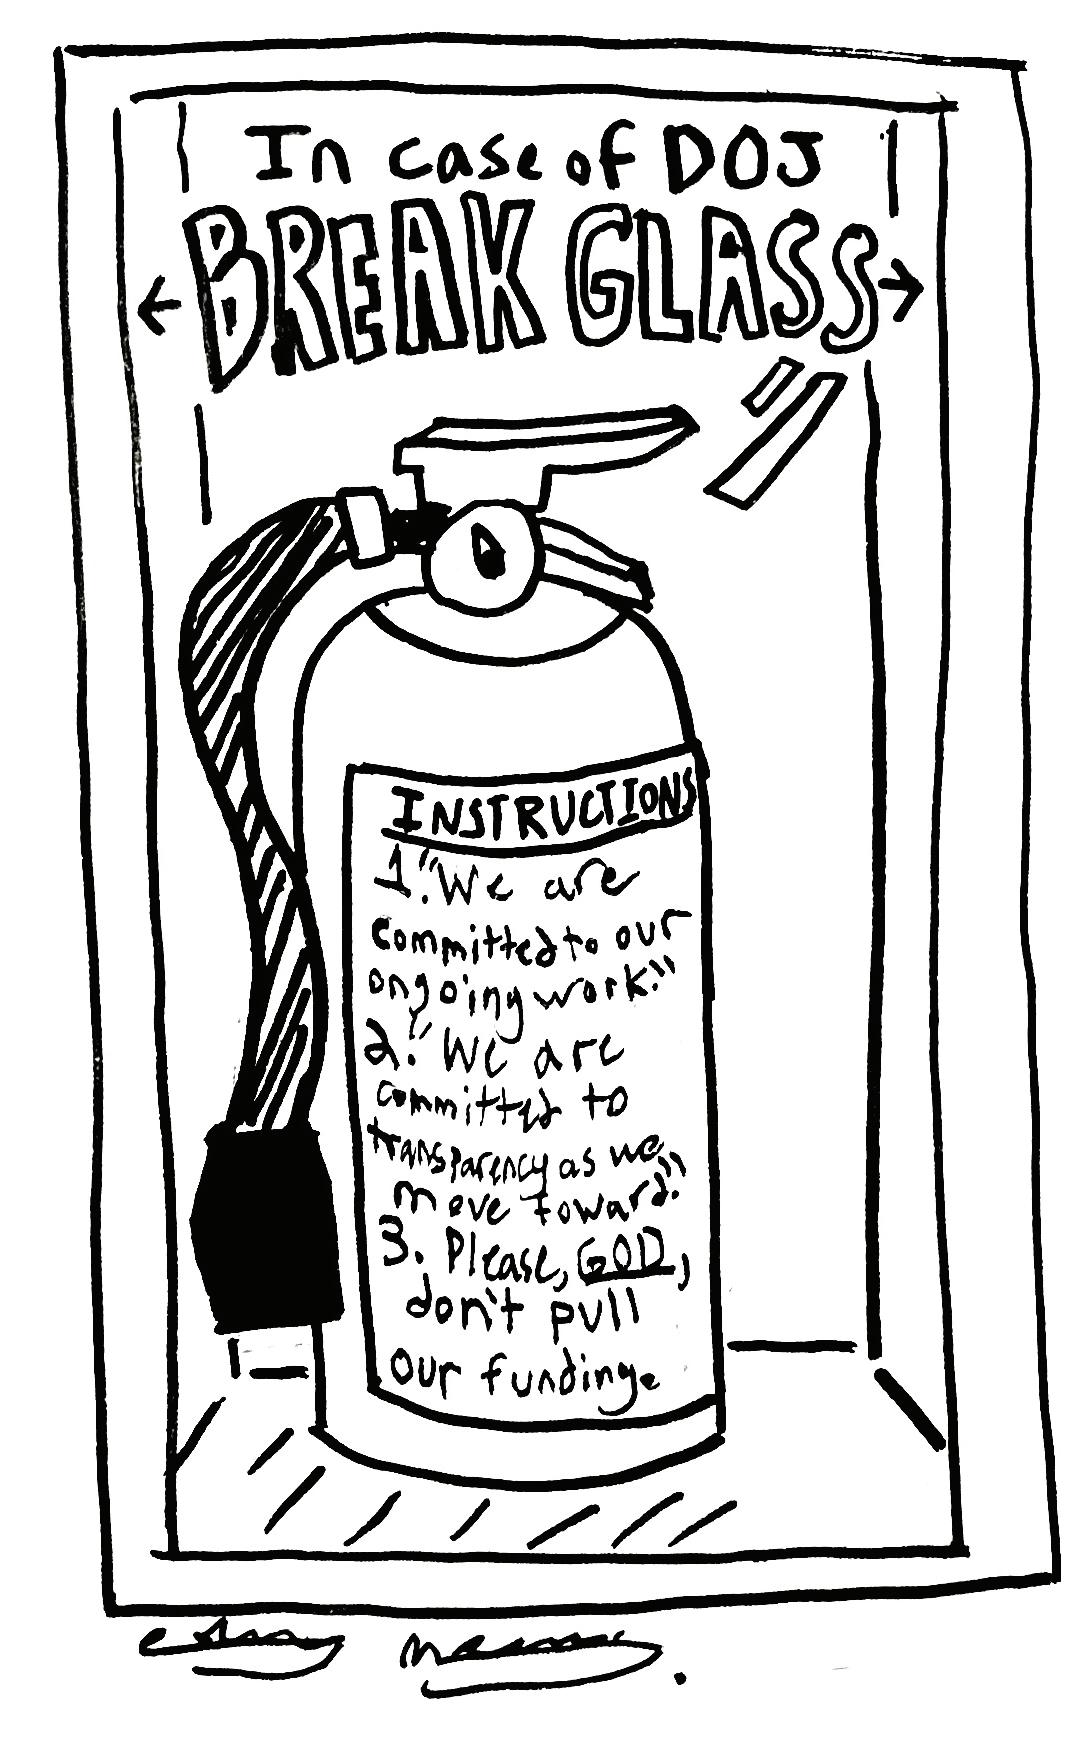 In case of DOJ
BREAK GLASS
INSTRUCTIONS
1. "We are
committed to our
ongoing work."
2. "We are
committed to
transparency as we
move foward."
3. Please, GOD,
don't pull
our funding.